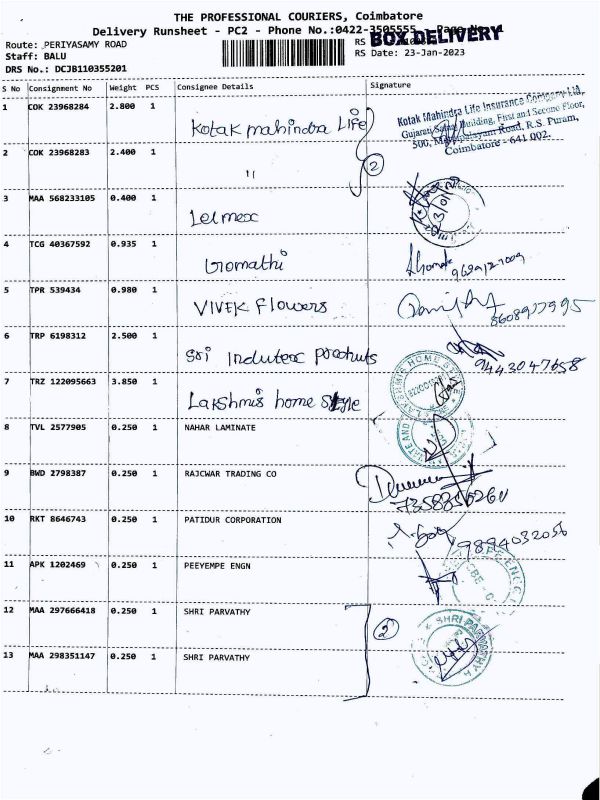 THE PROFESSIONAL COURIERS, Coimbatore
Delivery Runsheet - PC2 - Phone No.:0422-3505555
BOX DELIVERY
Route: PERIYASAMY ROAD
RS
Staff: BALU
RS Date: 23-Jan-2023
DRS No.: DCJB110355201
S No Consignment No Weight PCS Consignee Details Signature
1 COK 23968284 2.800 1 Kotak mahindra Life
Kotak Mahindra Life Insurance Company Ltd,
Gujarati Samaj Building, First and Second Floor,
500, Mettupalayam Road, R.S. Puram,
Coimbatore - 641 002.
2 COK 23968283 2.400 1 "
2
3 MAA 568233105 0.400 1 Lelmex
4 TCG 40367592 0.935 1 Gomathi
5 TPR 539434 0.980 1 VIVEK Flowers
8608977995
6 TRP 6198312 2.500 1 Sri Indutex
9443047658
7 TRZ 122095663 3.850 1 Lakshmis home Style
8 TVL 2577905 0.250 1 NAHAR LAMINATE
9 BWD 2798387 0.250 1 RAJCWAR TRADING CO
10 RKT 8646743 0.250 1 PATIDUR CORPORATION
9894032056
11 APK 1202469 0.250 1 PEEYEMPE ENGN
12 MAA 297666418 0.250 1 SHRI PARVATHY
2
SHRI PARVATHY
13 MAA 298351147 0.250 1 SHRI PARVATHY